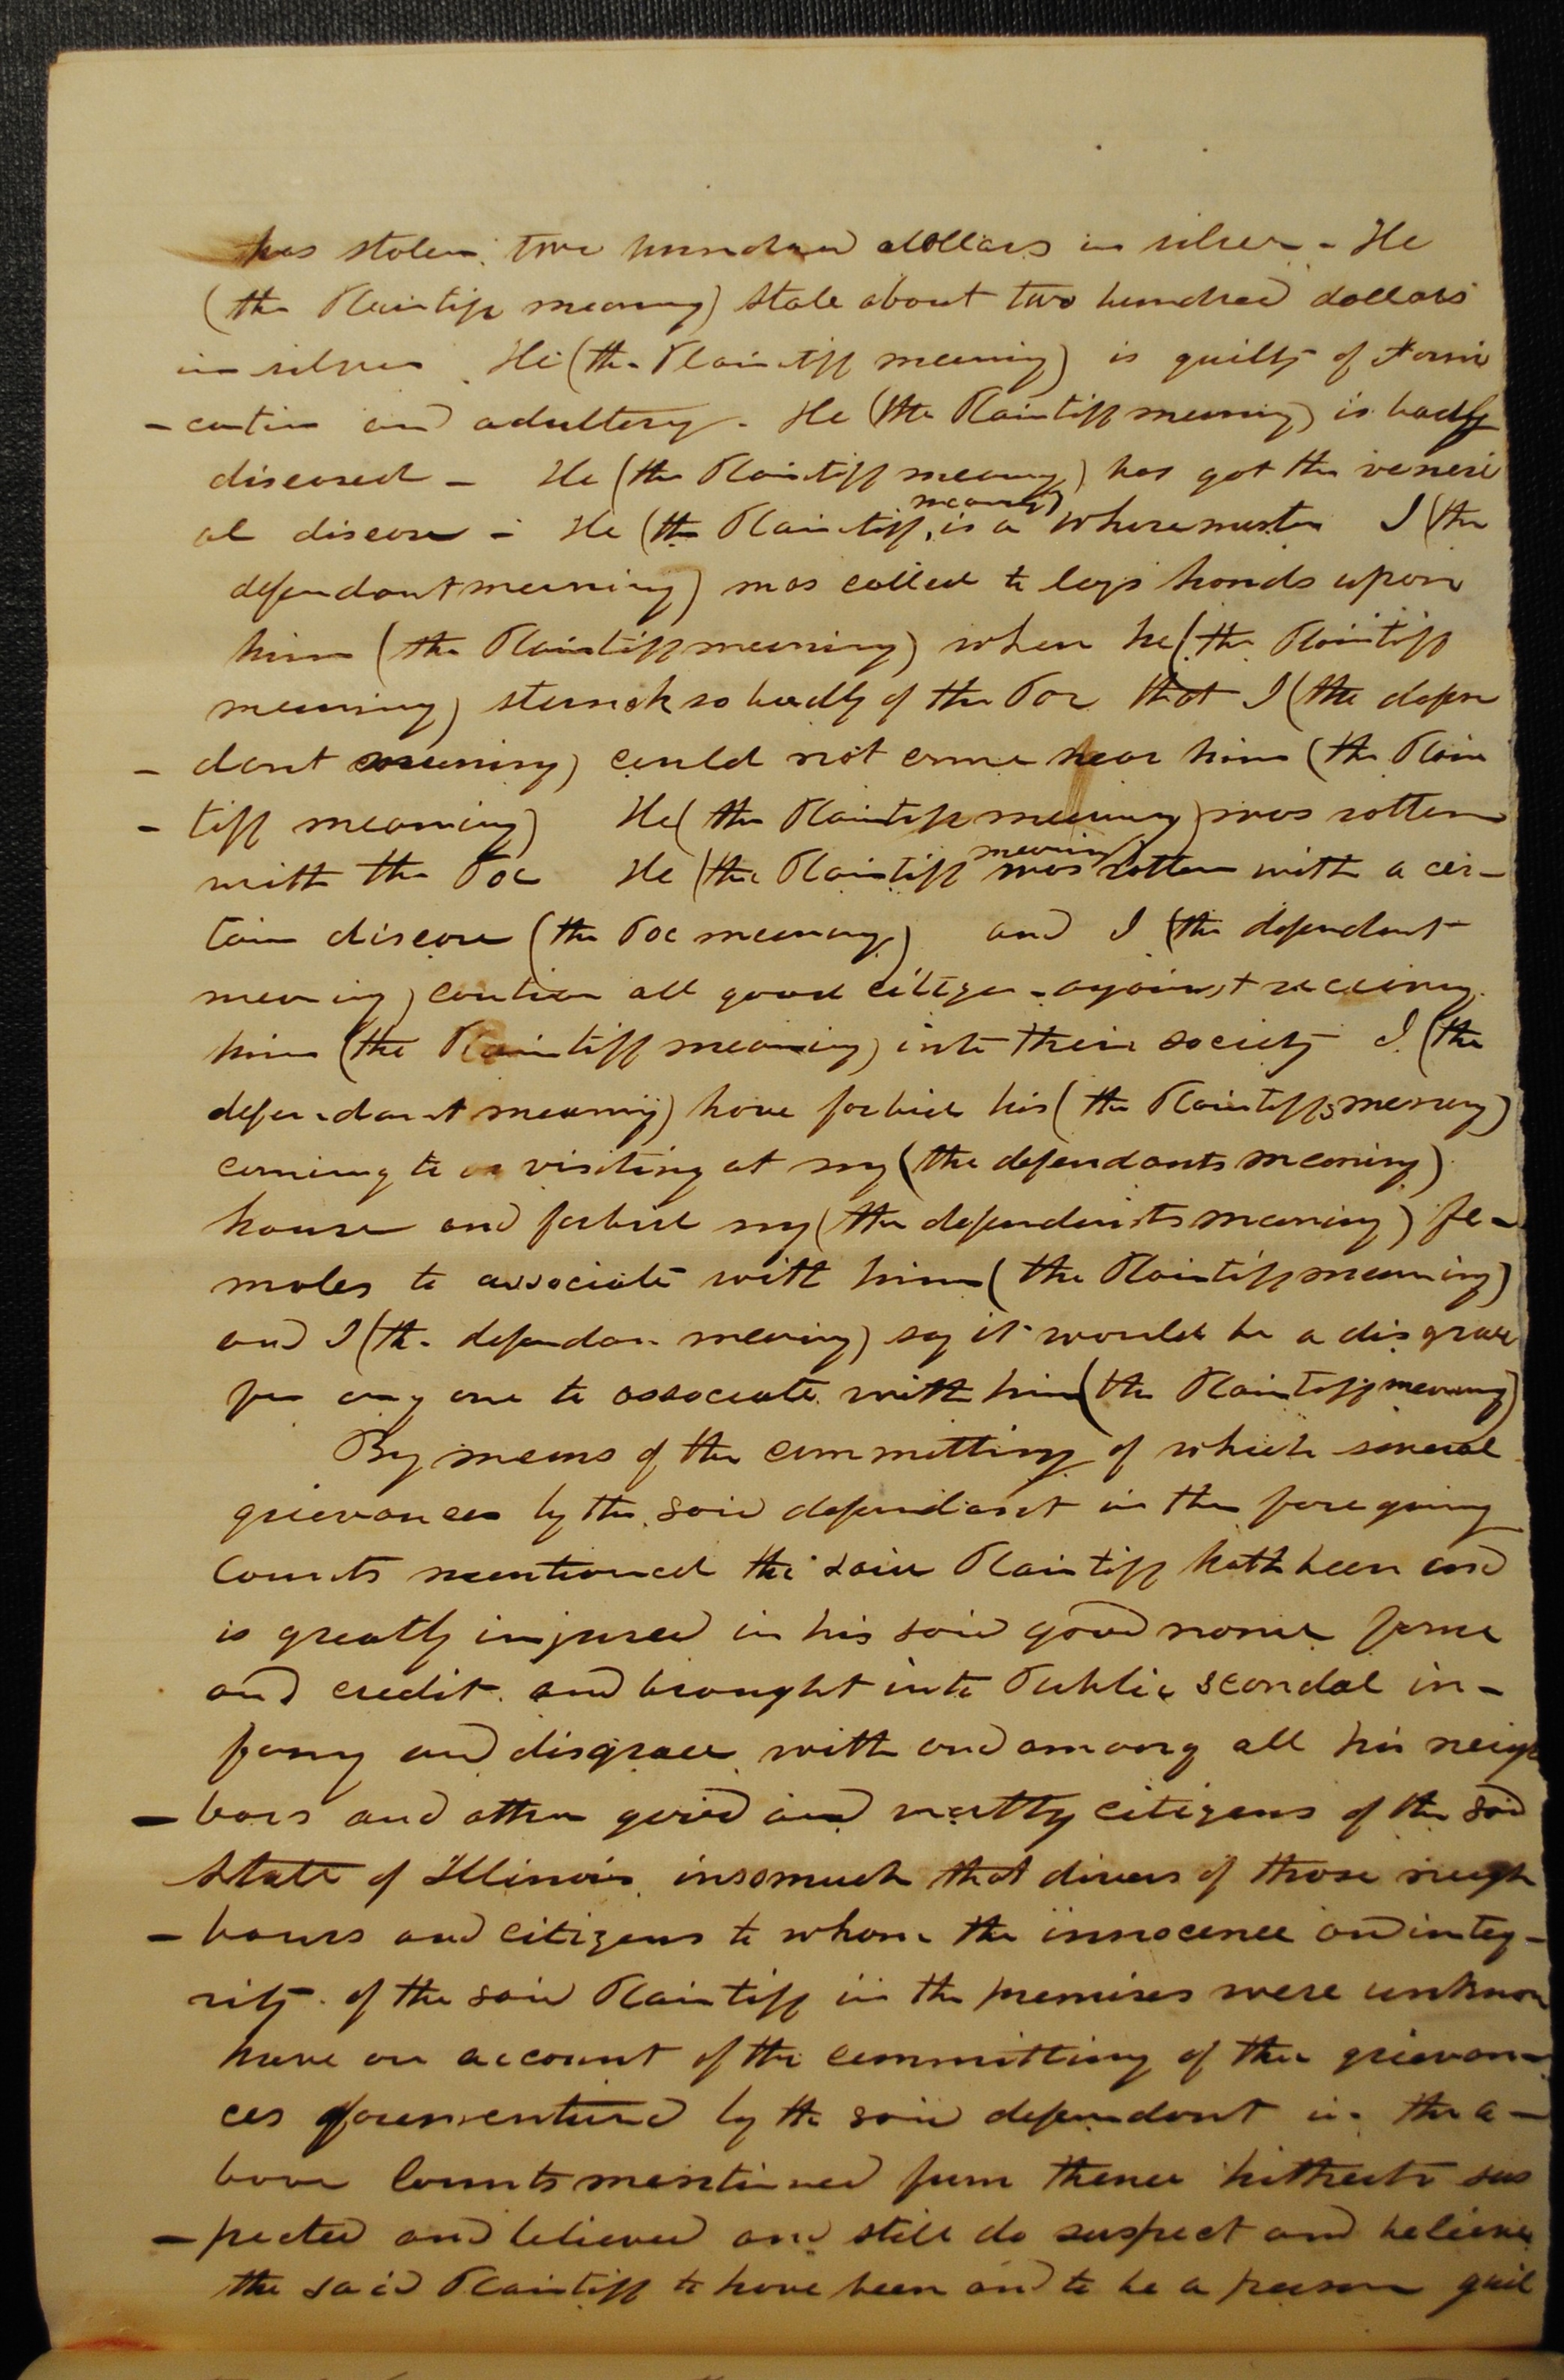 has stolen two hundred dollars in silver - He
(the Plaintiff meaning) stole about two hundred dollars
in silver. He (the Plaintiff meaning) is guilty of Forni
- cation and adultery - He (the Plaintiff meaning) is badly
diseased - He (the Plaintiff meaning) has got the veneri
al disease - He (the Plaintiff meaning) is a whoremaster I (the
defendant meaning) was called to lay hands upon
him (the Plaintiff meaning) when he (the Plaintiff
meaning) stunk so badly of the Pox that I (the defen
- dant meaning) could not come near him (the Plain
- tiff meaning) He (the Plaintiff meaning) was rotten
with the Pox He (the Plaintiff meaning) was rotten with a cer-
tain disease (the Pox meaning) and I (the defendant
meaning) caution all good citizens against receiving
him (the Plaintiff meaning) into their society I (the
defendant meaning) have forbid his (the Plaintiffs meaning)
coming to or visiting at my (the defendants meaning)
house and forbid my (the defendants meaning) fe-
males to associate with him (the Plaintiff meaning)
and I (the defendan meaning) say it would be a disgrace
for any one to associate with him (the Plaintiff meaning)
By means of the committing of which several
grievances by the said defendant in the foregoing
Counts mentioned the said Plaintiff hath been and
is greatly injured in his said good name fame
and credit and brought into Public scandal in-
famy and disgrace with and among all his neigh
- bors and other good and worthy citizens of the said
State of Illinois insomuch that divers of those neigh
- bours and citizens to whom the innocence and integ-
rity of the said Plaintiff in the premises were unknown
have on account of the committing of the grievan-
ces aforementioned by the said defendant in the a-
bove Counts mentioned from thence hitherto sus
- pected and believed and still do suspect and believe
the said Plaintiff to have been and to be a person guil